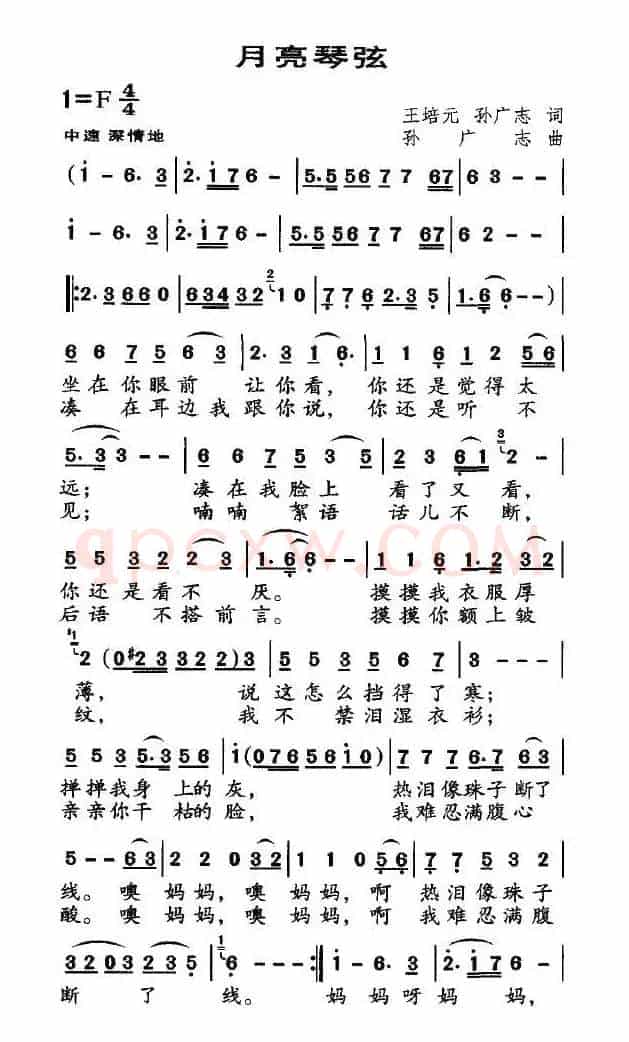 月亮琴弦
1=F 4/4
王培元 孙广志 词
中速 深情地
孙广志 曲
(i - 6. 3 | 2. i 7 6 - | 5. 5 5 5 6 7 7 6 7 | 6 3 - - |
i - 6. 3 | 2. i 7 6 - | 5. 5 5 5 6 7 7 6 7 | 6 2 - - |
‖: 2. 3 6 6 0 | 6 3 4 3 2 1 0 | 7 7 6 2. 3 5 | 1. 6 6 - - )
6 6 7 5 6 3 | 2. 3 1 6. | 1 1 6 1 2 5 6 |
坐在你眼前 让你看, 你还是觉得太
凑 在耳边我跟你说, 你还是听 不
5. 3 3 - - | 6 6 7 5 3 5 | 2. 3 6 1 2 - |
远; 凑在我脸上 看了又看,
见; 喃喃絮语 话儿不断,
qpcxw.com
5 5 3 2 2 3 | 1. 6 6 - - | 1 1 6 1. 2 3 2 |
你还是看不 厌。 摸摸我衣服厚
后语 不搭前言。 摸摸你额上皱
2 (0 #2 3 3 2 2 3) | 5 5 3 5 6 7 | 3 - - - |
薄, 说这怎么挡得了寒;
纹, 我不 禁泪湿衣衫;
5 5 3 5. 3 5 6 | i (0 7 6 5 6 i 0) | 7 7 7 6. 7 6 3 |
掸掸我身 上的灰, 热泪像珠子断了
亲亲你干 枯的脸, 我难忍满腹心
5 - - 6 3 | 2 2 0 3 2 | 1 1 0 5 6 | 7 7 5 3 5 |
线。噢妈妈,噢妈妈,啊 热泪像珠子
酸。噢妈妈,噢妈妈,啊 我难忍满腹
3 2 0 3 2 3 5 | 6 - - - :‖ i - 6. 3 | 2. i 7 6 - |
断 了 线。 妈 妈呀妈 妈,